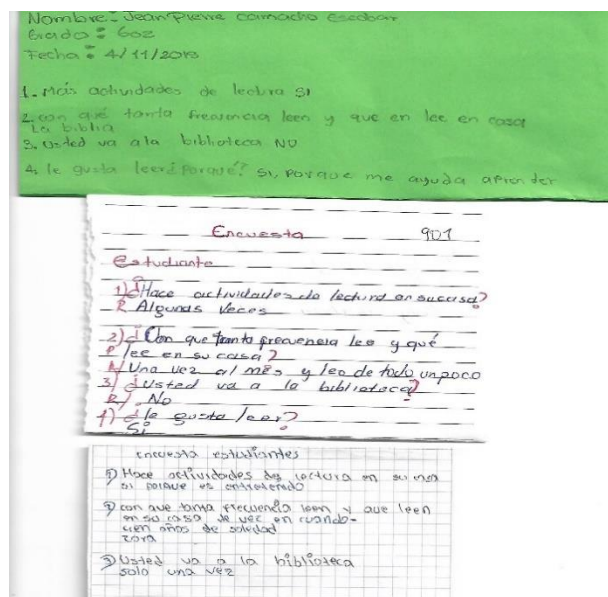 Nombre: Jean Pierre camacho Escobar
Grado: 602
Fecha: 4/11/2018
1. Más actividades de lectura SI
2. con qué tanta frecuencia leen y que en lee en casa
La biblia
3. Usted va ala biblioteca NO
4. le gusta leer¿Porqué? SI, porque me ayuda aprender
Encuesta 901
Estudiante
1) ¿Hace actividades de lectura en su casa?
R Algunas veces
2) ¿Con que tanta frecuencia lee y qué
lee en su casa?
R/ Una vez al mes y leo de todo un poco
3) ¿Usted va a la biblioteca?
R/. No
4) ¿le gusta leer?
Si
encuesta estudiantes
1) Hace actividades de lectura en su
si porque es entretenido
2) con que tanta frecuencia leen y que leen
en su casa de vez en cuando-
cien años de soledad
3) Usted va a la biblioteca
solo una vez